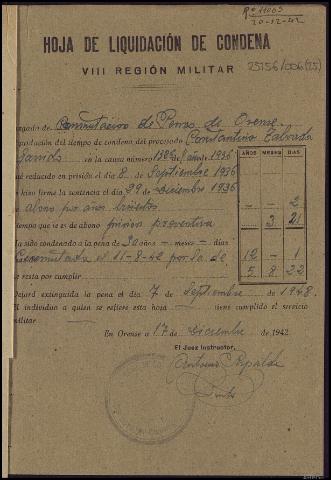 Rº 11009
20-12-42
HOJA DE LIQUIDACIÓN DE CONDENA
VIII REGIÓN MILITAR
25756/006(25)
uzgado de Conmutación de Penas de Orense.
iquidación del tiempo de condena del procesado Constantino Taboada
en la causa número 1306 año de 1936
ué reducido en prisión el día 8 de Septiembre 1936
e hizo firme la sentencia el día 29 de diciembre 1936
AÑOS MESES DIAS
e abono por años bisiestos — — 2
iempo que le es de abono prisión preventiva — 3 21
a sido condenado a la pena de 30 años — meses — días
Conmutada el 11-8-42 por la de 12 — 1
e resta por cumplir 5 8 22
Dejará extinguida la pena el día 7 de Septiembre de 1948.
El individuo a quien se refiere esta hoja — tiene cumplido el servicio
militar —
En Orense a 17 de Diciembre de 1942
El Juez Instructor,
Antonio